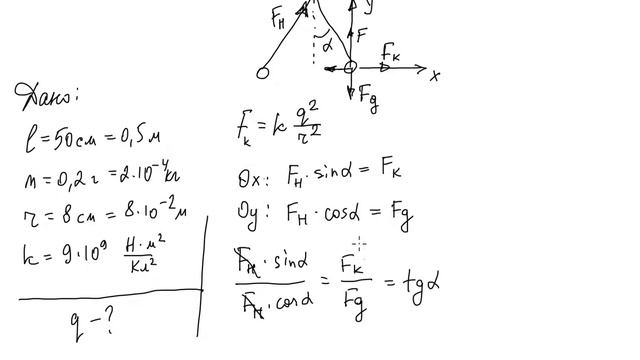 y
Fн
F
α
Fк
x
Fg
Дано:
l = 50 см = 0,5 м
m = 0,2 г = 2·10⁻⁴ кг
r = 8 см = 8·10⁻² м
k = 9·10⁹ Н·м²/Кл²
q – ?
Fк = k q²/r²
Ox: Fн · sinα = Fк
Oy: Fн · cosα = Fg
Fн · sinα / Fн · cosα = Fк / Fg = tgα